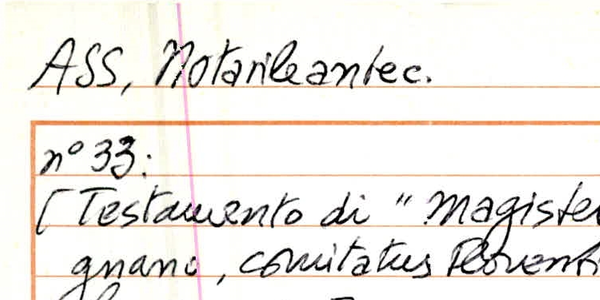 ASS, Notarile antec.
n° 33:
[Testamento di "magister
gnano, comitatus Florenti